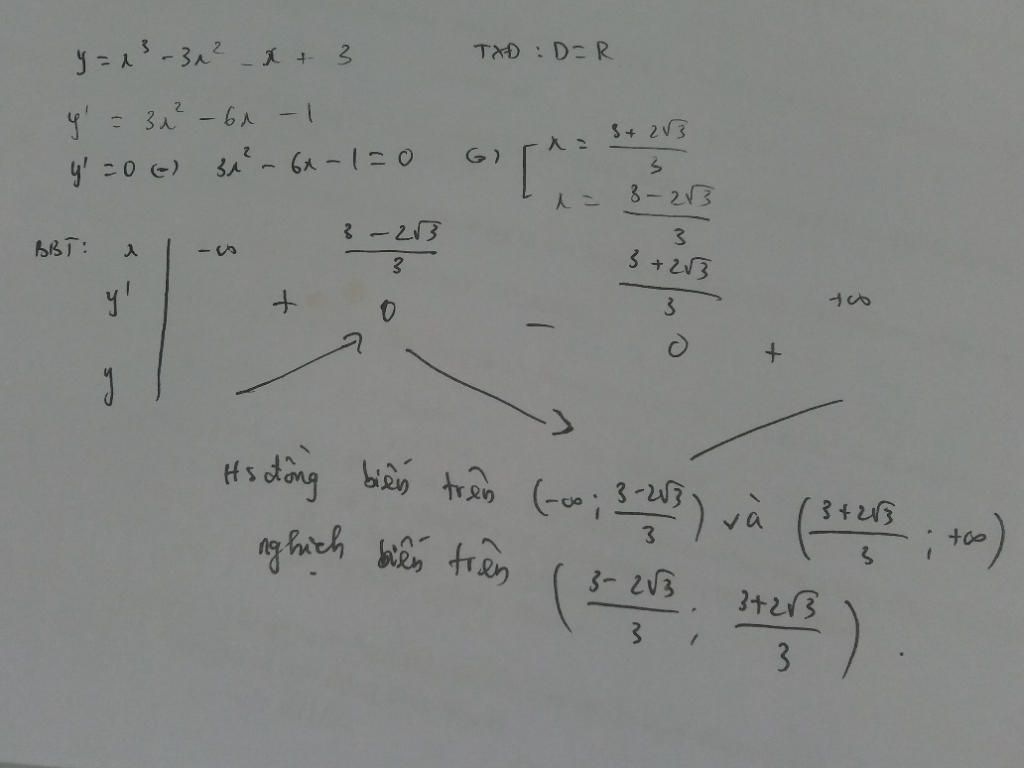 y = x³ - 3x² - x + 3 TXĐ : D = R
y' = 3x² - 6x - 1
y' = 0 ⇔ 3x² - 6x - 1 = 0 ⇔ [ x = (3 + 2√3)/3
x = (3 - 2√3)/3
BBT: x | -∞ (3 - 2√3)/3 (3 + 2√3)/3 +∞
y' | + 0 - 0 +
y | ↗ ↘ ↗
Hs đồng biến trên (-∞ ; (3 - 2√3)/3) và ((3 + 2√3)/3 ; +∞)
nghịch biến trên ((3 - 2√3)/3 ; (3 + 2√3)/3) .